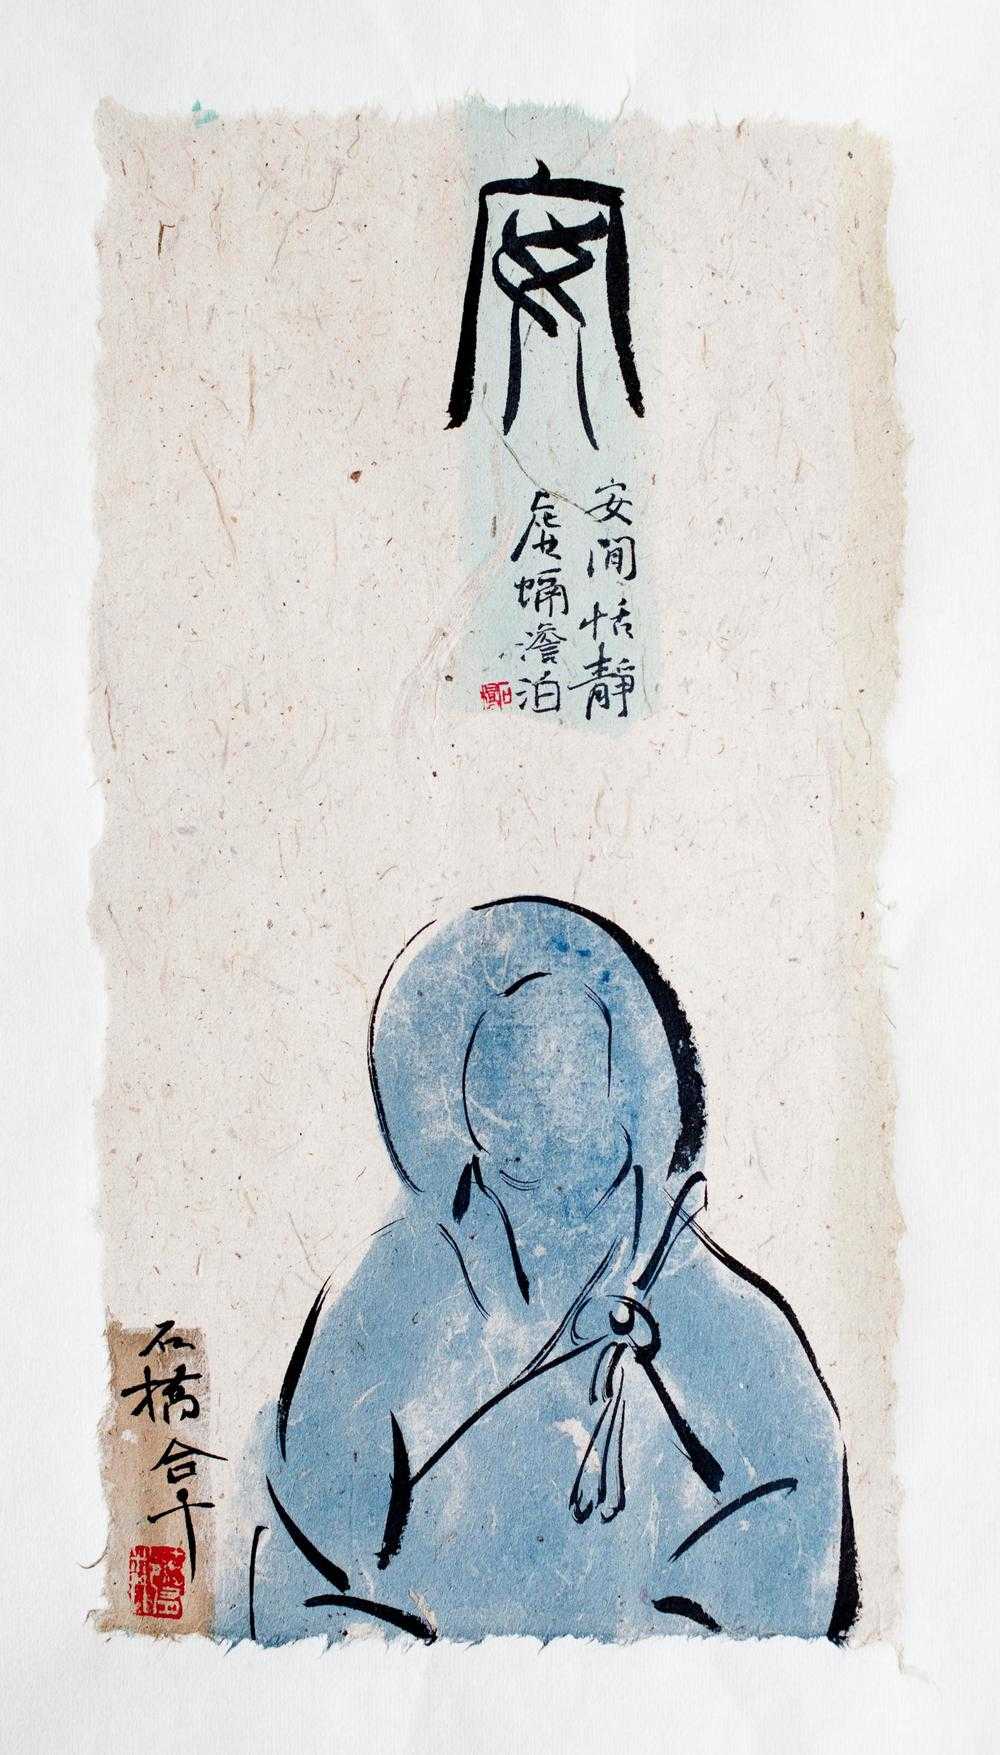 安
安閒恬靜
虛螎澹泊
石橋合十